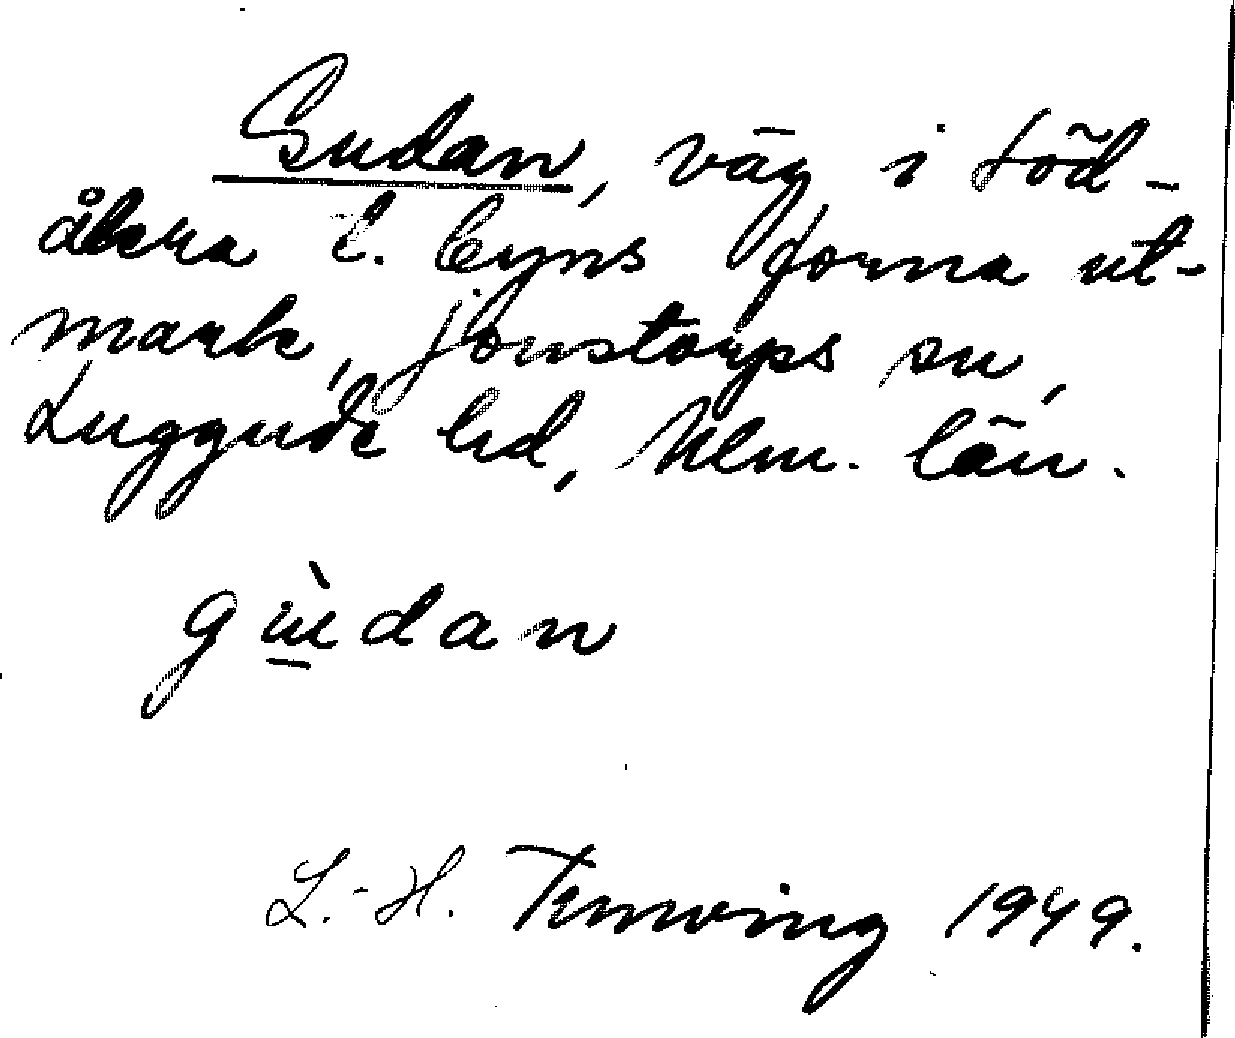 Gudan, väg i Söd-
åkra l. byns forna ut-
mark, Jonstorps sn,
Luggude hd, Mlm. län.
gu̇̀dan
L.-H. Ternwing 1949.